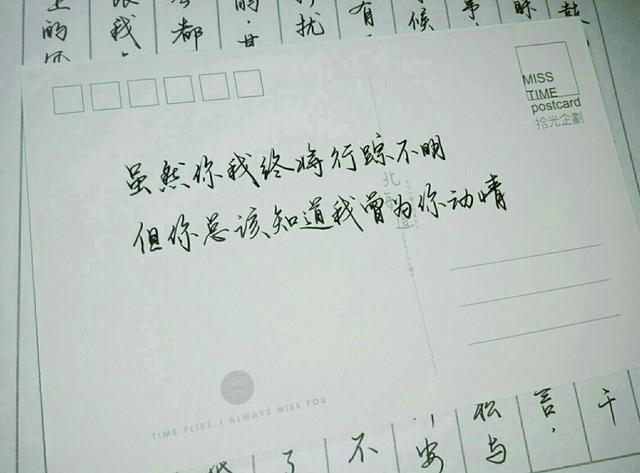 MISS
TIME
postcard
拾光企劃
虽然你我终将行踪不明
但你总该知道我曾为你动情
北海道
TIME FLIES, I ALWAYS MISS YOU
的
我
都
的
扰
有
候
了
不
安
松与
言,
千